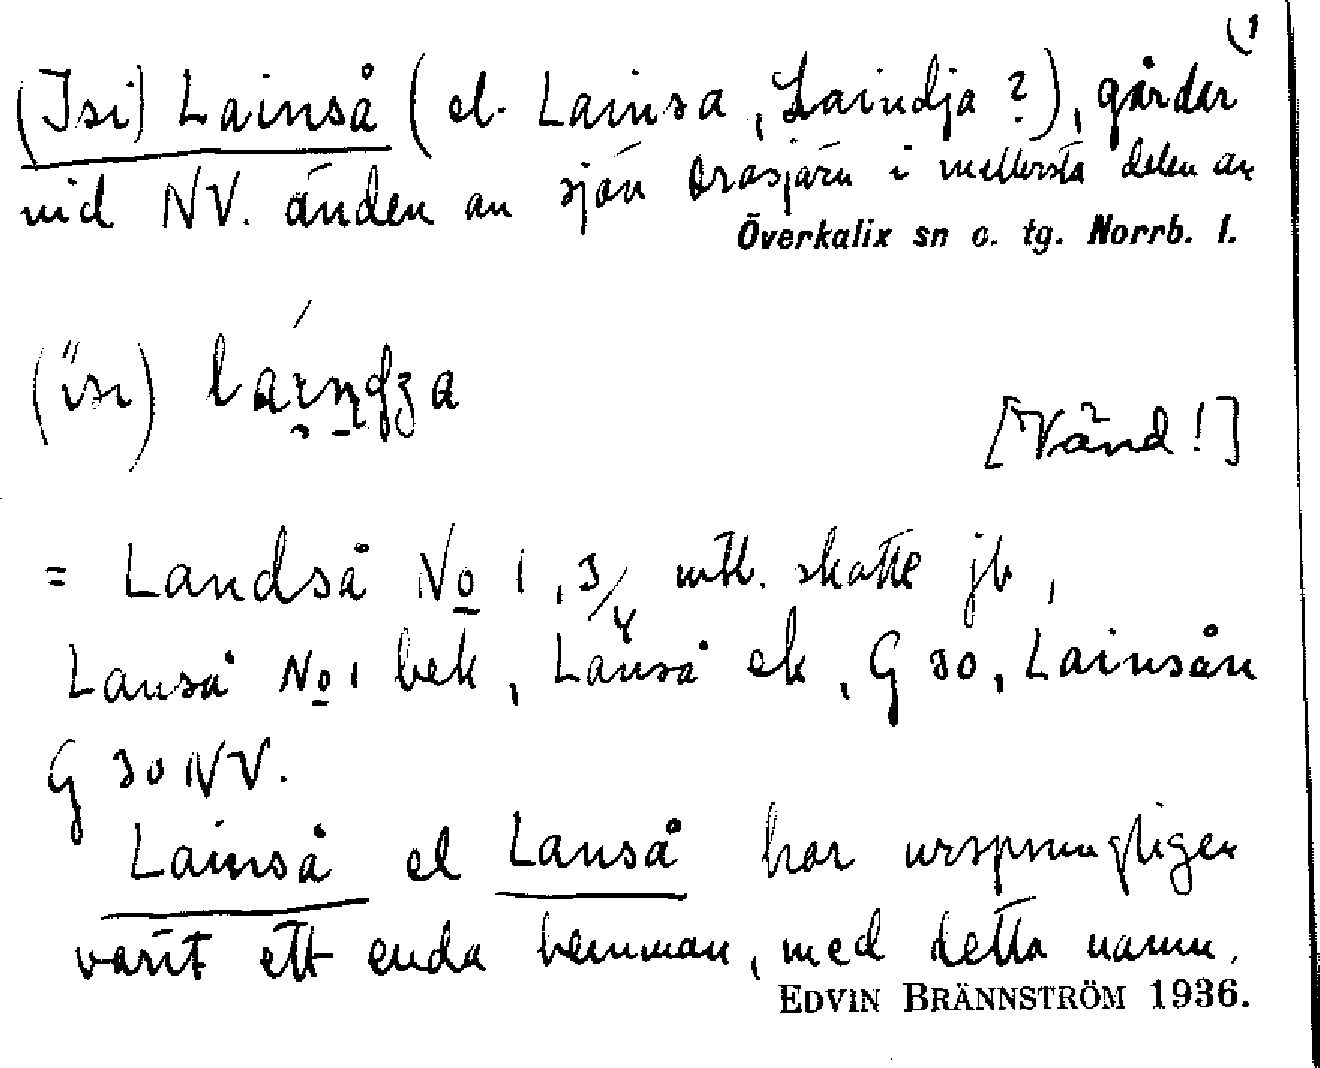 (1
(Isi) Lainså (el. Lainsa, Laindja?), gårdar
vid NV. änden av sjön Orasjärv i mellersta delen av
Överkalix sn o. tg. Norrb. l.
[Vänd!]
= Landså No 1, 3/4 mtl. skatte jb,
Lanså No 1 bek, Lånså ek, G 30, Lainsån
G 30 NV.
Lainså el Lanså har ursprungligen
varit ett enda hemman, med detta namn.
EDVIN BRÄNNSTRÖM 1936.